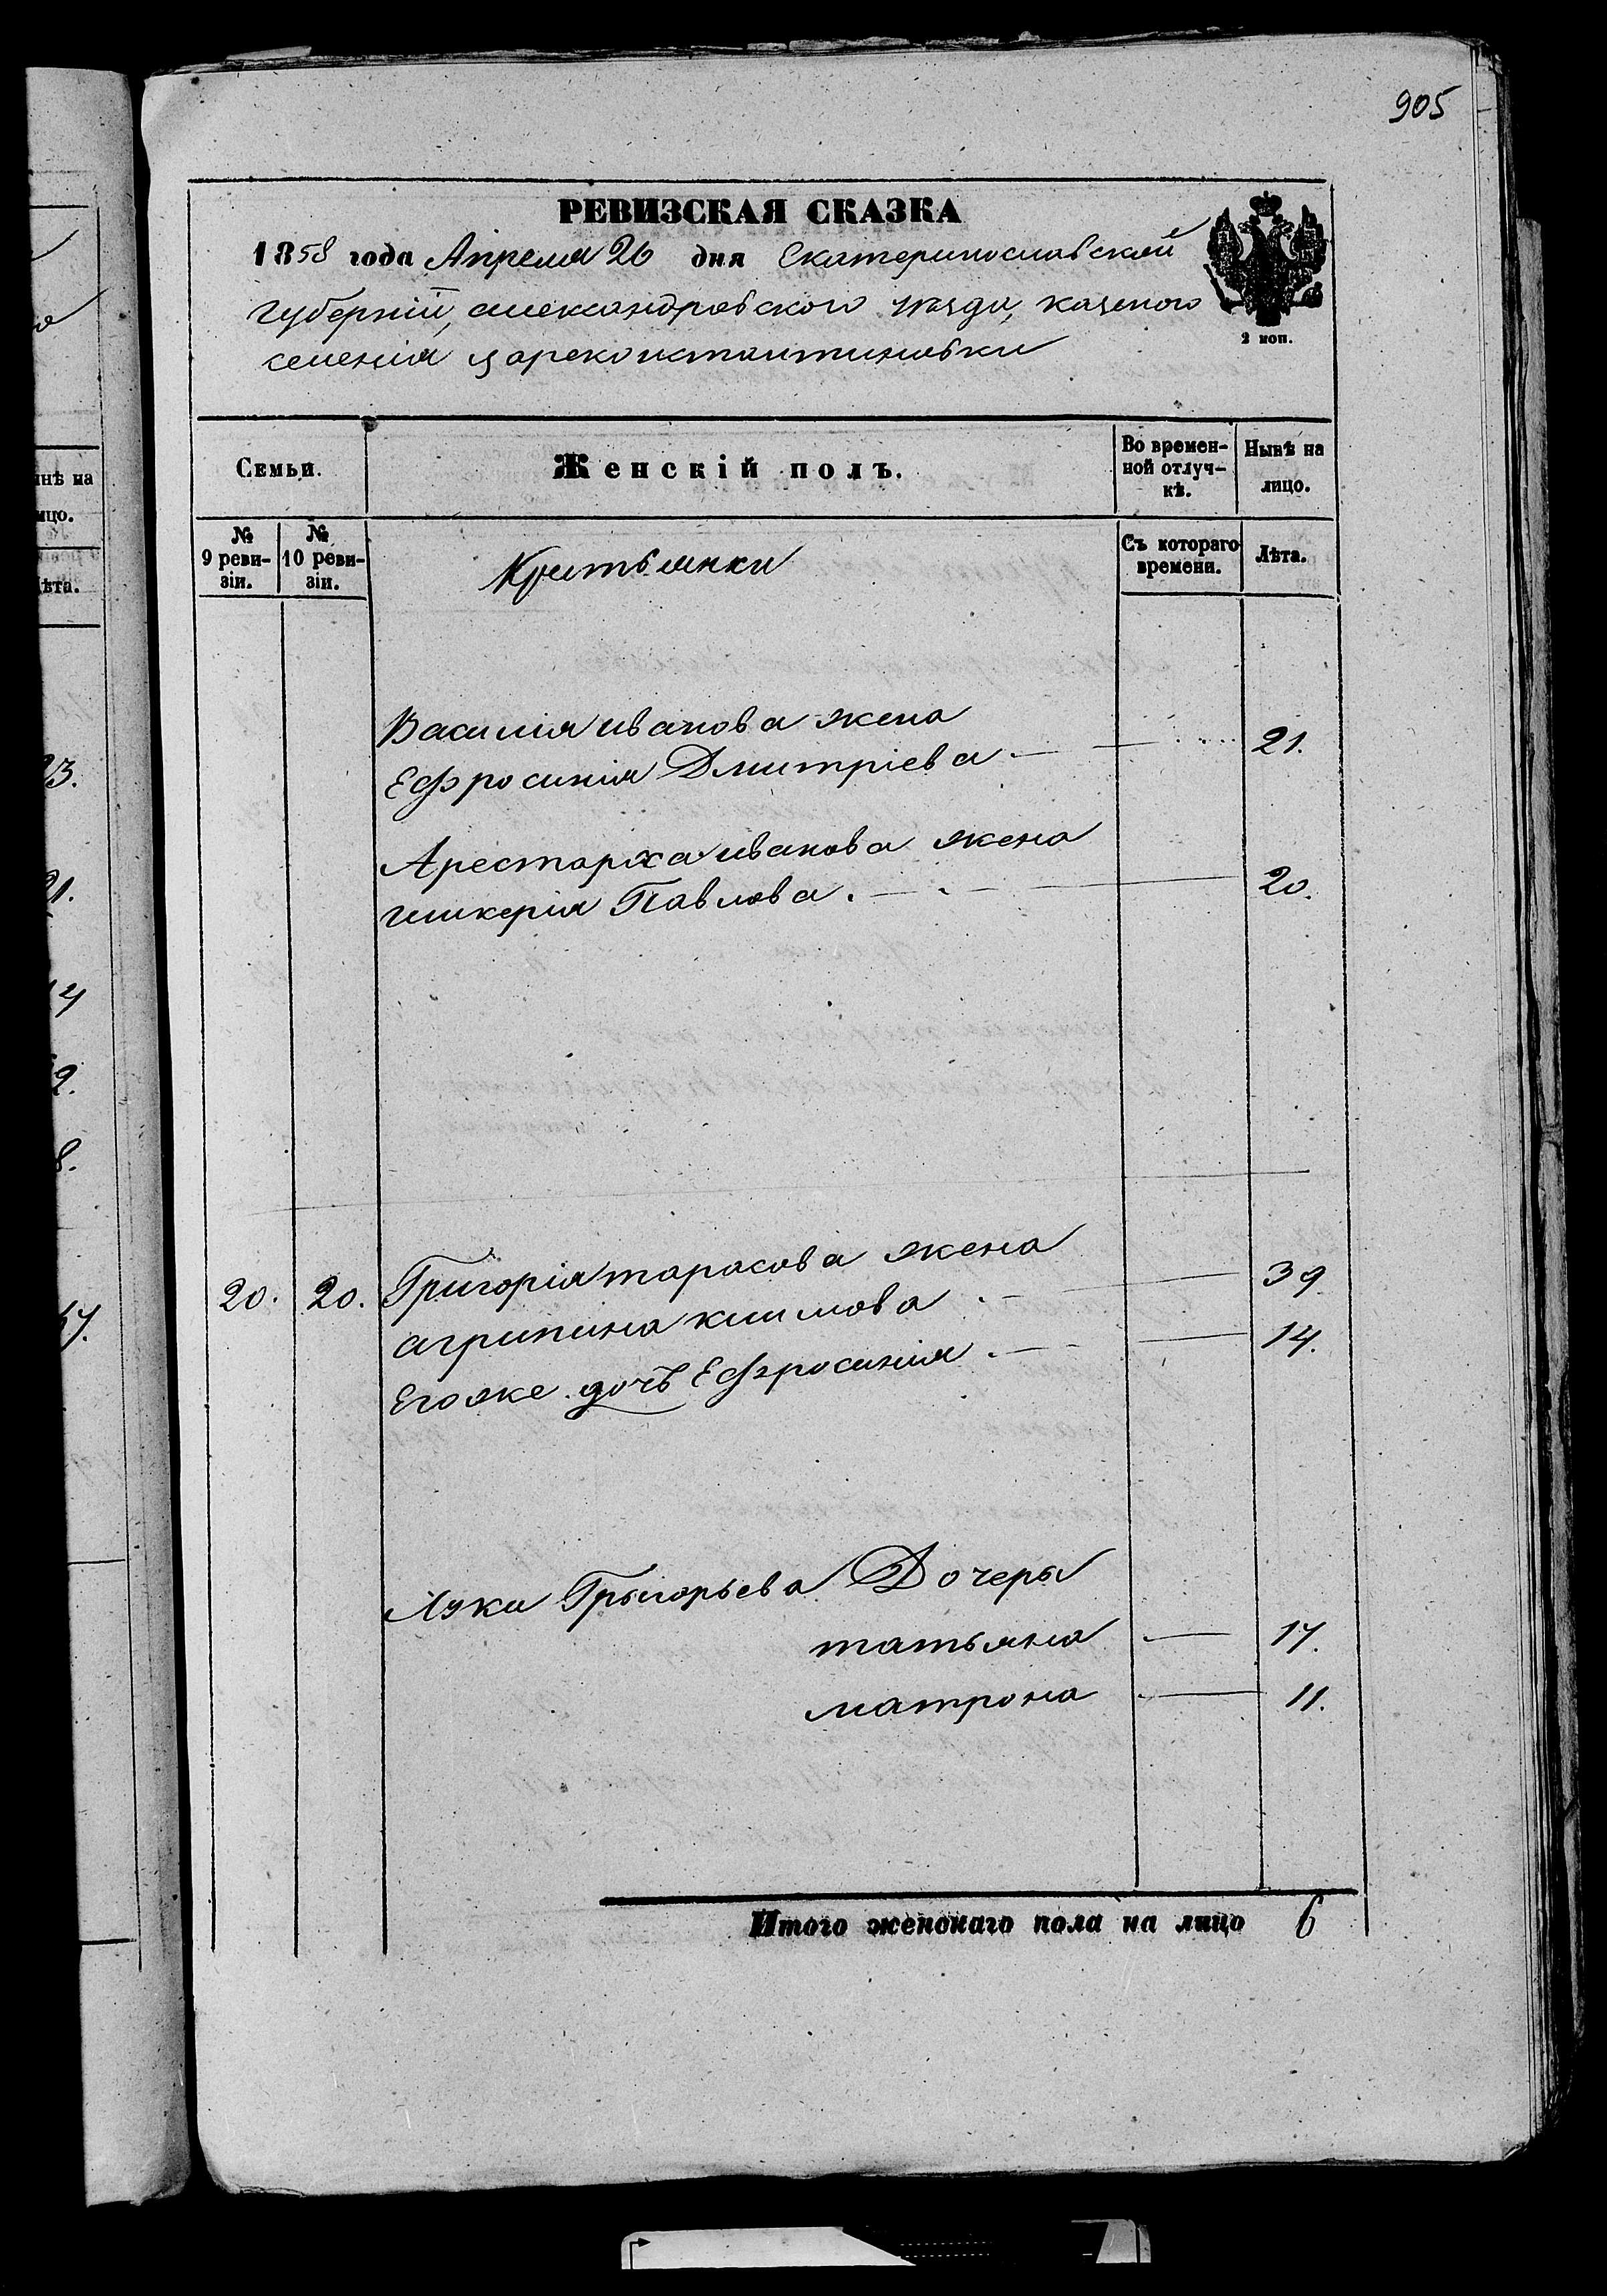 905
РЕВИЗСКАЯ СКАЗКА
1858 года Апреля 26 дня Екатеринославской
губерніи, александровского уезда, казеного
селенія цареконстантиновки
2 коп.
Семьи. Женскій полъ. Во времен- Нынѣ на
ной отлуч- лицо.
кѣ.
№ № Съ котораго Лѣта.
9 реви- 10 реви- времени.
зіи. зіи.
Кристьянки
Василия иванова жена
Ефросинія Дмитріева 21.
Арестарха иванова жена
гликерія Павлова. 20.
20. 20. Григорія тарасова жена
агрипина климова 39
Егоже дочь Ефросинія 14.
Луки Грыгорьева Дочеры
татьяна 17.
матрона 11.
Итого женскаго пола на лицо 6
нѣ на
ицо.
ѣта.